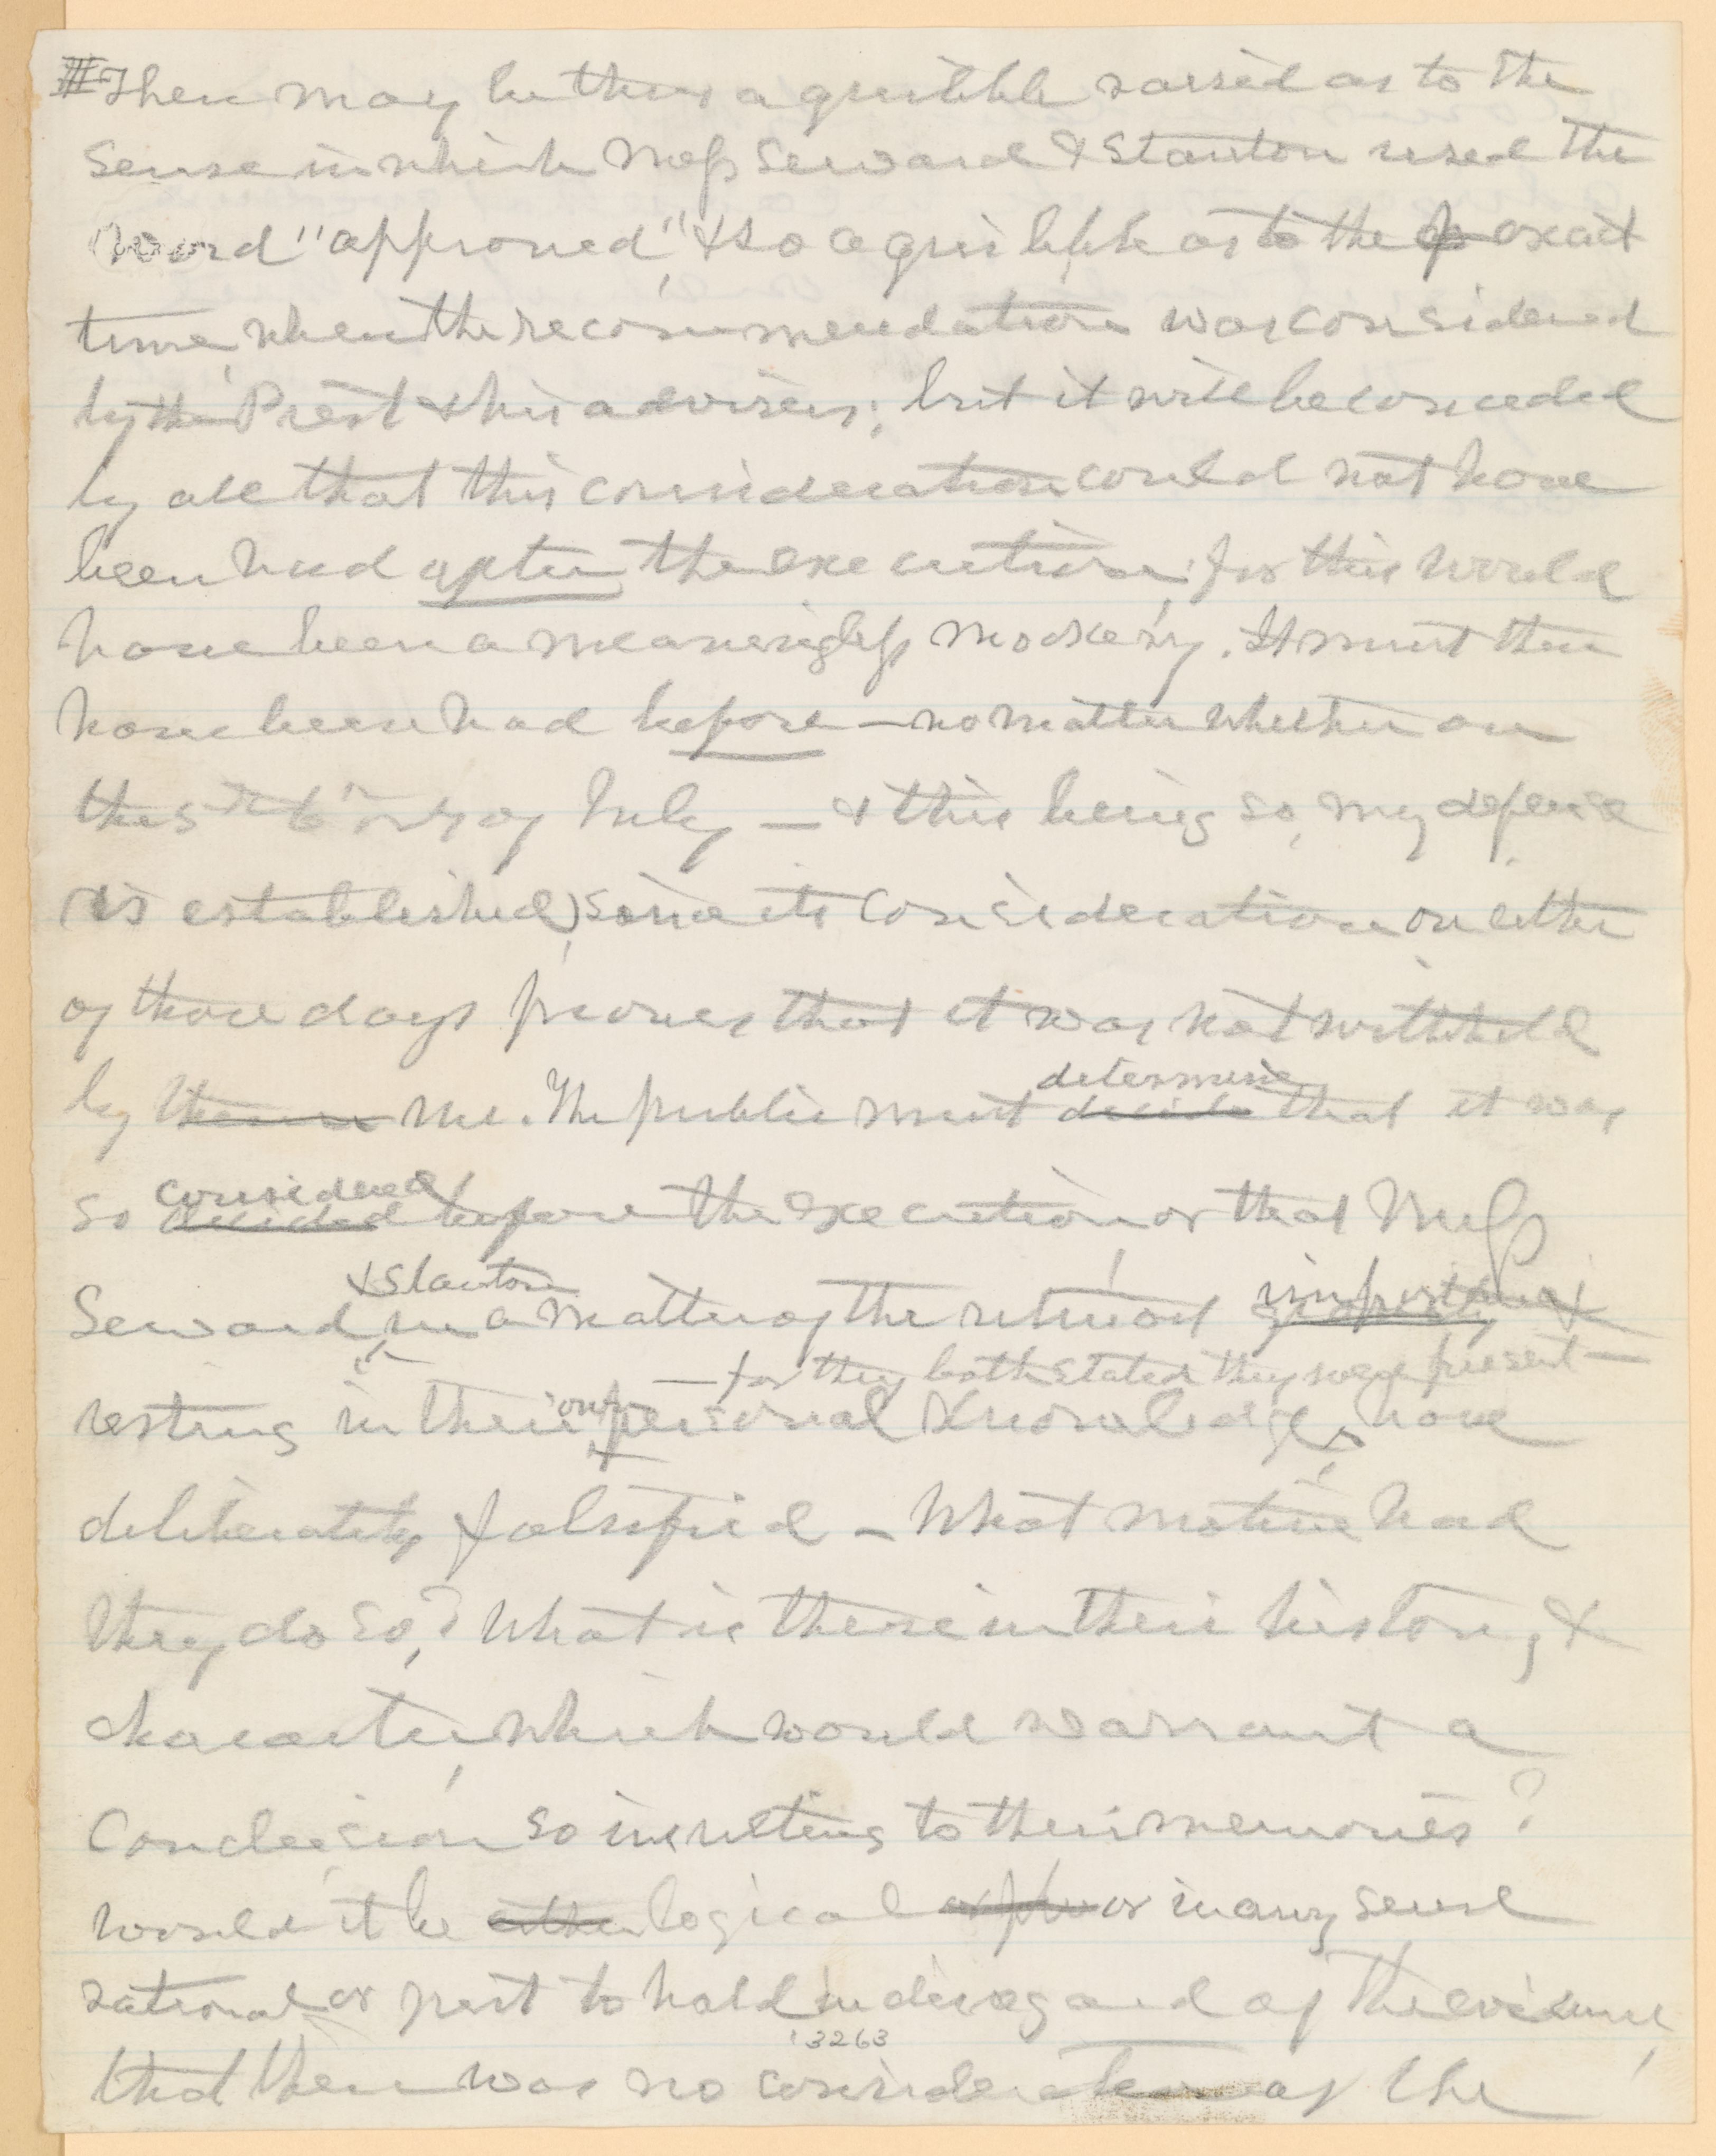 There may be thus a quibble raised as to the
sense in which Mess Seward & Stanton used the
word "approved," & so a quibble as to the exact
time, when the recommendation was considered
by the Prest & his advisers; but it will be conceded
by all that this consideration could not have
been had after the execution; for this would
have been a meaningless mockery. It must then
have been had before — no matter whether on
the 5th 6th or 7 of July — & this being so, my defense
is established, since its consideration on either
of those days proves that it was not withheld
by me. The public must decide that it was
determine
so decided before the execution, or that Mess
considered
Seward, in a matter of the utmost
& Stanton
importance
resting in their own personal knowledge, have
— for they both stated they were present —
deliberately falsified — What motive had
they do so,? What is there in their history, &
character, which would warrant a
conclusion so insulting to their memories?
Would it be either logical or in any sense
rational or just to hold in disregard of the evidence,
13263
that there was no consideration of the